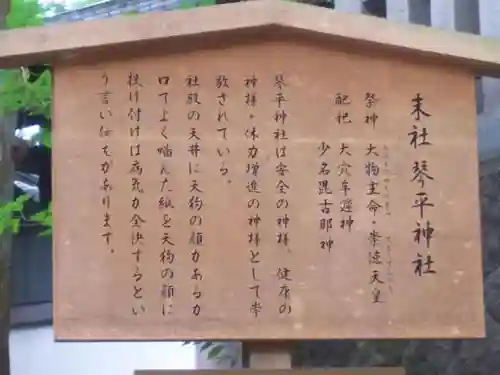 末社 琴平神社
祭神 大物主命・崇徳天皇
配祀 大穴牟遅神
少名毘古那神
琴平神社は安全の神様、健康の
神様・体力増進の神様として崇
敬されている。
社殿の天井に天狗の顔があるが
口でよく噛んだ紙を天狗の顔に
投け付けは病気が全快するとい
う言い伝えがあります。